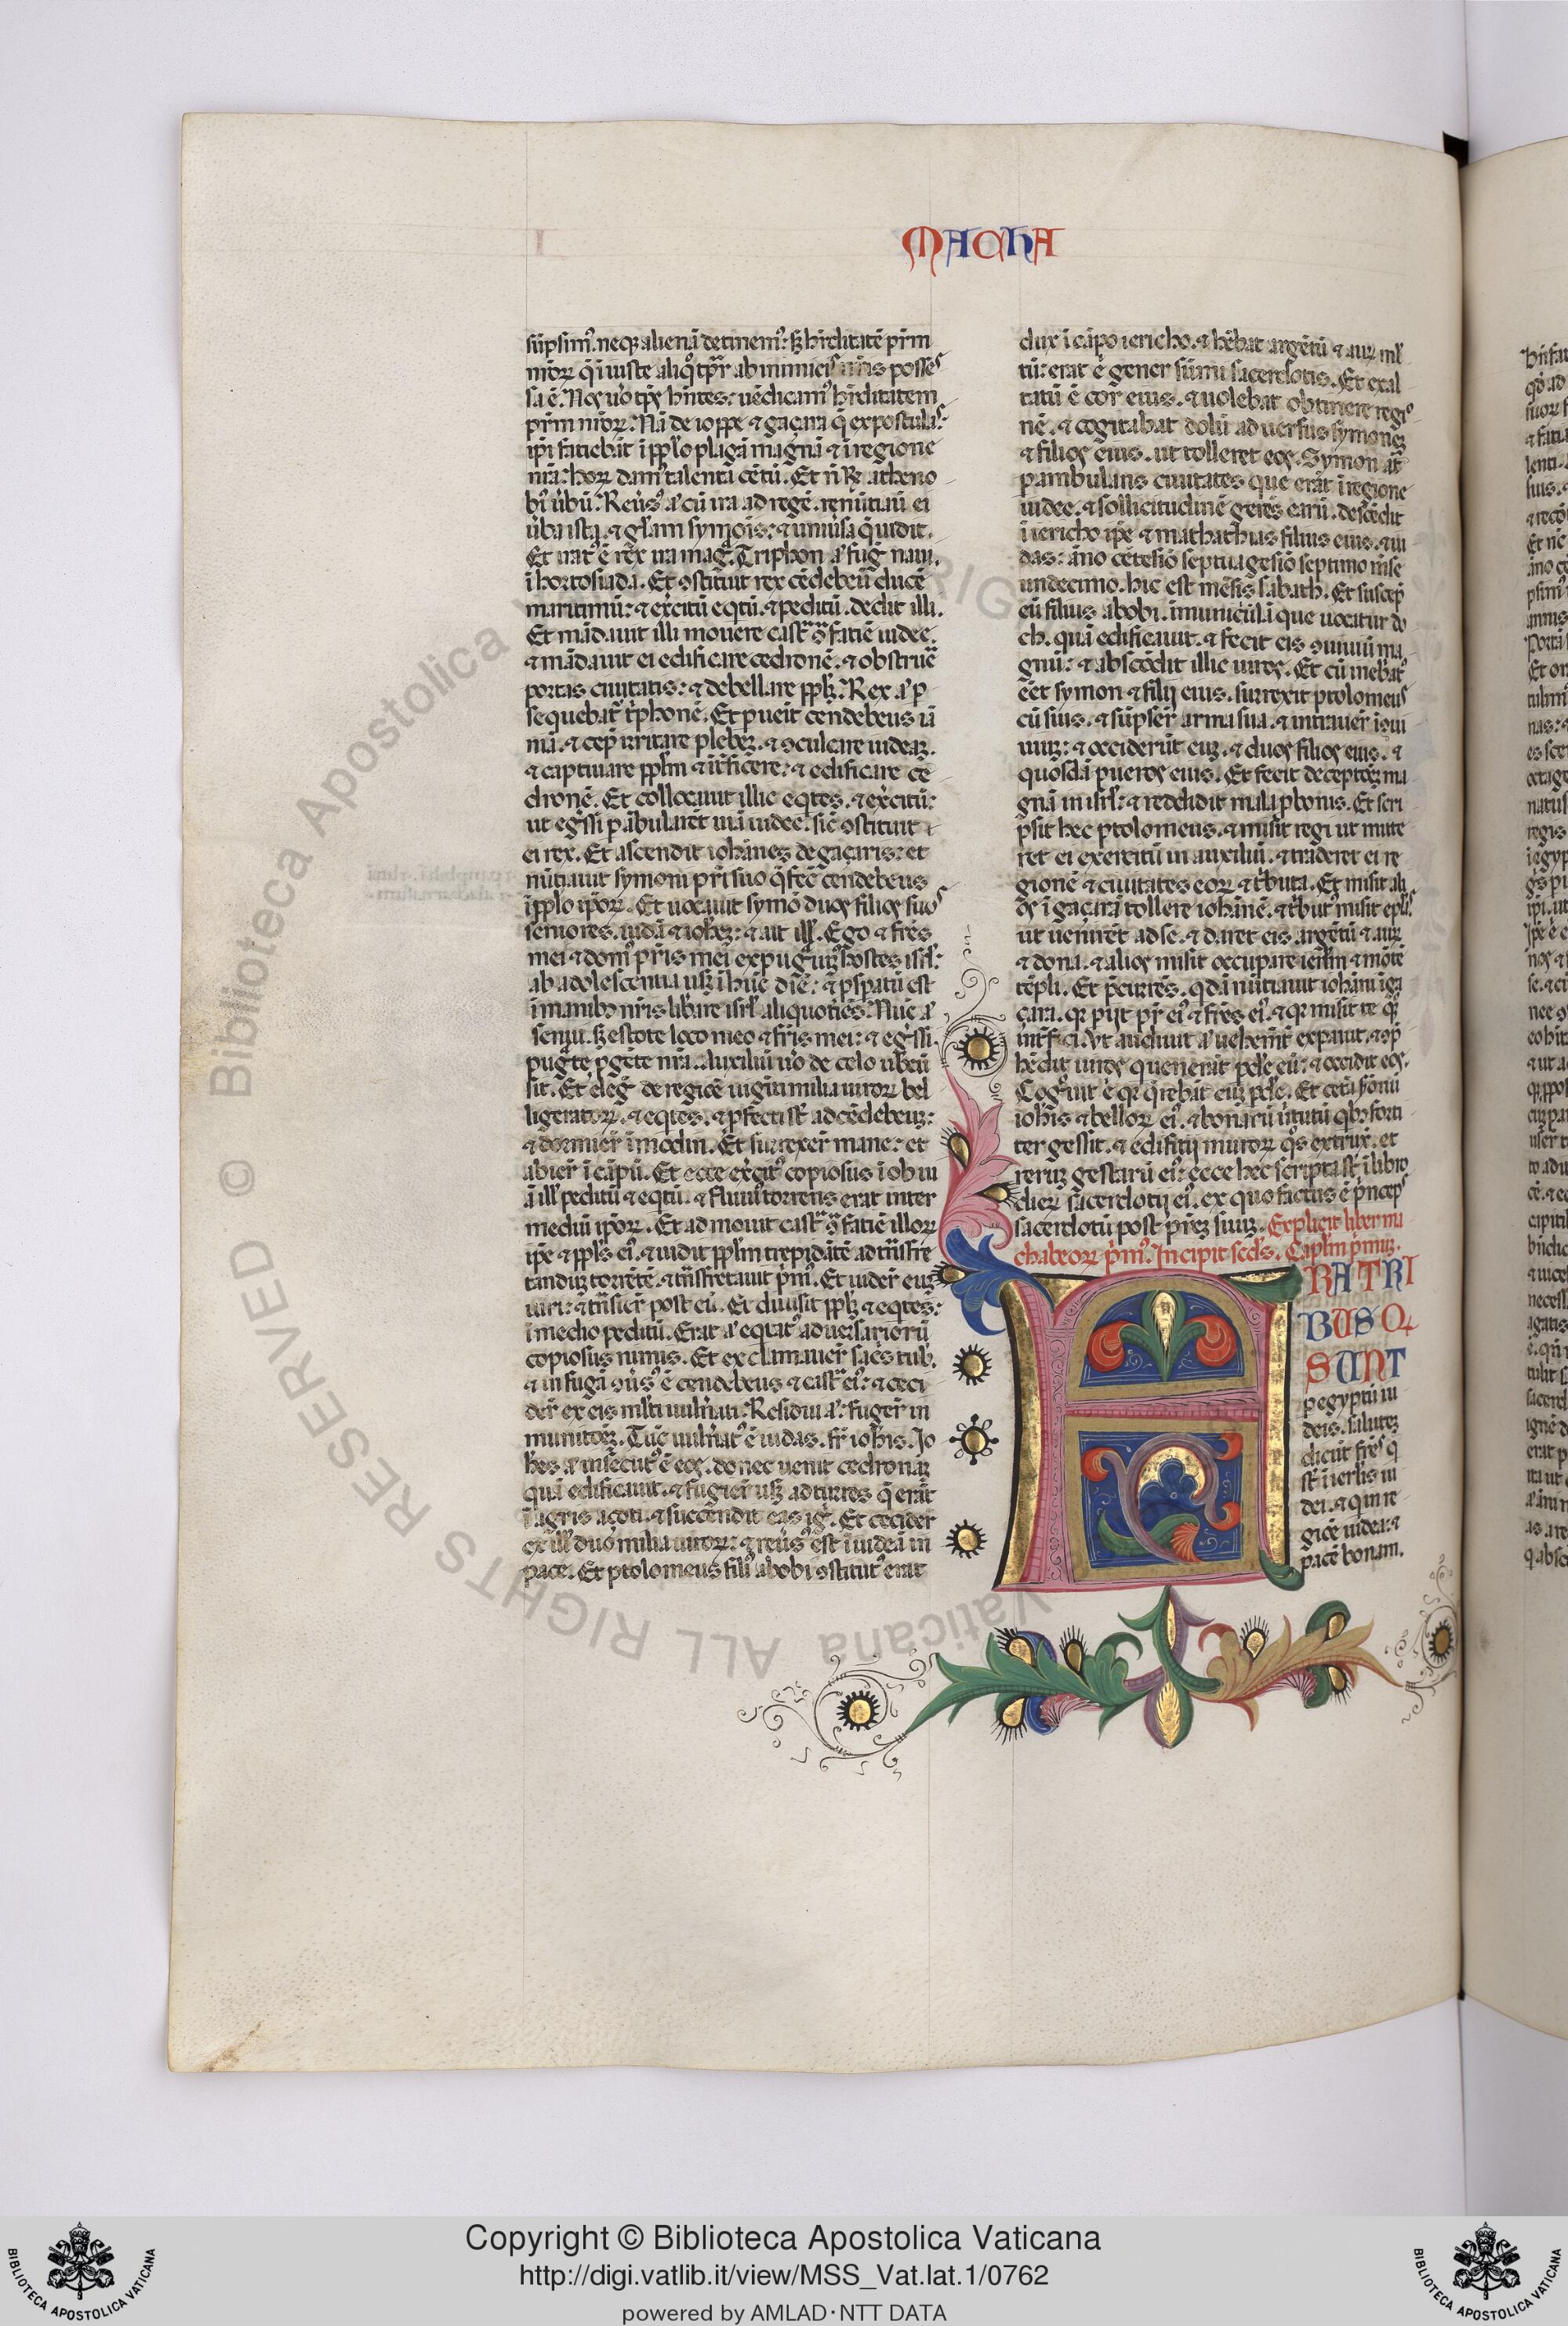 MACHA
sūpsimꝰ. neqꝫ alienā detinemꝰ: sꝫ hr̄ditatē pr̄m
nr̄orꝝ q̄ iniuste aliqͦ tp̄r ab inimicis nr̄is posses
sa ē. Nos ūo tp̄s hn̄tes: uēdicamꝰ hr̄ditatem
pr̄m nr̄orꝝ. Nā de ioppe ⁊ gaçara q̄ expostulas:
ip̄i faciebāt ī pp̄lo plagā magnā ⁊ ī regione
nr̄a: horꝝ damꝰ talenta cētū. Et n̄ rn̄. atheno
biꝰ ūbū. Reūsꝰ aͣ cū ira ad regē. renūtiaū ei
ūba ista. ⁊ gl̄am symōis: ⁊ uniūsa q̄ uidit.
Et iratꝰ ē rex ira mag. Triphon aͣ fuḡ naui.
ī hortosiada. Et ↄstituit rex cēdebeū ducē
maritimū: ⁊ exc̄itū eqtū. ⁊ peditū. dedit illi.
Et mādauit illi mouere castͣ ↄͣ faciē iudee.
⁊ mādauit ei edificare cedronē. ⁊ obstruē
portas ciuitatis: ⁊ debellare pp̄lꝫ. Rex aͣ p
sequebat᷑ tͥphonē. Et ꝑueit cendebeus iā
niā. ⁊ cep̄ irritare plebeꝫ. ⁊ ↄculcare iudeaꝫ.
⁊ captiuare pp̄lm ⁊ īt̄ficere: ⁊ edificare ce
dronē. Et collocauit illic eqtes. ⁊ exc̄itū:
ut eg̃ssi ꝑābularēt uiā iudee. sic̄ ↄstituit
ei rex. Et ascendit iohānes de gaçaris: et
nūtiauit symoni pr̄i suo q̄ fec̄ cendebeus
ī pp̄lo ip̄orꝝ. Et uocauit symō duos filios suos
seniores. iudā ⁊ ioh̄eꝫ: ⁊ ait ill̄. Ego ⁊ fr̄es
mei ⁊ domꝰ pr̄is mei expug̃uiꝰ hostes isrl̄:
ab adolescentia usqꝫ ī hūc diē: ⁊ ꝓspatū est
ī manibꝫ nr̄is lib̄are isrl̄ aliquotiēs. Nūc aͣ
senui. sꝫ estote loco meo ⁊ fr̄is mei: ⁊ eg̃ssi.
pug̃te ꝓ gēte nr̄a. Auxiliū ūo de celo ub̄cū
sit. Et eleḡ de regiōe uiginti milia uirorꝝ bel
ligeratorꝝ. ⁊ eqtes. ⁊ ꝓfecti st̄ ad cēdebeuꝫ:
⁊ dormier̄ ī modin. Et surrexer̄ mane: et
abier̄ ī cāpū. Et ecce exc̄itꝰ copiosus ī obui
ā ill̄ peditū ⁊ eqtū. ⁊ fluuiꝰ torrens erat inter
mediū ip̄orꝝ. Et admouit castͣ ↄͣ faciē illorꝝ
ip̄e ⁊ pp̄ls eiꝰ. ⁊ uidit pp̄lm trepidātē ad trāsfre
tanduꝫ torrētē. ⁊ trāsfretauit pͥmꝰ. Et uider̄ euꝫ
uiri: ⁊ trāsier̄ post eū. Et diuisit pp̄lꝫ ⁊ eqtes:
ī medio peditū. Erat aͣ equitatꝰ aduersariorū
copiosus nimis. Et exclamauer̄ sac̄s tub̄.
⁊ in fugā ↄūsꝰ ē cendebeus ⁊ castͣ eiꝰ: ⁊ ceci
der̄ ex eis ml̄ti uuln̄ati: Residui aͣ: fuger̄ in
munitōꝫ. Tūc uuln̄atꝰ ē iudas. fr̄ ioh̄is. Jo
h̄es aͣ īsecutꝰ ē eos. donec uenit cedronaꝫ
quā edificauit. ⁊ fugier̄ usqꝫ ad turres q̄ erāt
ī agris açoti. ⁊ succendit eas iḡ. Et cecider̄
ex ill̄ duo milia uirorꝝ: ⁊ reūsꝰ est ī iudeā in
pace. Et ptolomeus filiꝰ abobi ↄstitutꝰ erat
dux ī cāpo iericho. ⁊ hēbat argētū ⁊ aurꝝ ml̄
tū: erat ē gener sūmi sacerdotis. Et exal
tatū ē cor eius. ⁊ uolebat obtinere regio
nē. ⁊ cogitabat dolū aduersus symoneꝫ
⁊ filios eius. ut tolleret eos. Symon aͣt̄
ꝑambulans ciuitates que erāt ī regione
iudee. ⁊ sollicitudinē gerēs earū. descēdit
ī iericho ip̄e ⁊ mathathias filius eius. ⁊ iu
das: āno cētesiō septuagesiō septimo mēse
undecimo. hic est mēsis sabath. Et suscep̄
eū filius abobi. ī municiūclā que uocatur do
ch. quā edificauit. ⁊ fecit eis ↄuiuiū ma
gnū: ⁊ abscōdit illic uiros. Et cū inebriatꝰ
eēt symon ⁊ filij eius. surrexit ptolomeus
cū suis. ⁊ sūpser̄ arma sua. ⁊ intrauer̄ ī ↄui
uiuꝫ: ⁊ occiderūt euꝫ. ⁊ duos filios eius. ⁊
quosdā pueros eius. Et fecit deceptōeꝫ ma
gnā in isrl̄: ⁊ reddidit mala ꝓ bonis. Et scri
psit hec ptolomeus. ⁊ misit regi ut mitte
ret ei exercitū in auxiliū. ⁊ traderet ei re
gionē ⁊ ciuitates eorꝝ ⁊ tͥbuta. Et misit ali
os ī gaçarā tollere iohānē. ⁊ tͥbunꝰ misit epl̄as
ut uenirēt ad se. ⁊ daret eis argētū ⁊ aurꝝ
⁊ dona. ⁊ alios misit occupare ierl̄m ⁊ mōtē
tēpli. Et p̄currēs. qdā nūtiauit iohāni ī ga
çara. qꝛ pijt pr̄ eiꝰ ⁊ fr̄es eiꝰ. ⁊ qꝛ misit te qͦqꝫ
int̄fici. Vt audiuit aͣ uehem̄t expauit. ⁊ ↄp̄
hēdit uiros qui uenerāt pd̄e eū: ⁊ occidit eos.
Cog̃uit ē qꝛ q̄rebāt euꝫ pd̄e. Et cetͣ sermōnū
ioh̄is ⁊ bellorꝝ eiꝰ. ⁊ bonarū ūtutū qbꝫ forti
ter gessit. ⁊ edificij murorꝝ qͦs extruxͥ. et
reruꝫ gestarū eiꝰ: ecce hec scripta st̄ ī libro
dierꝝ sacerdotij eiꝰ. ex quo factus ē pͥnceps
sacerdotū post pr̄eꝫ suuꝫ. Explicit liber ma
chabeorꝝ pͥmꝰ. Incipit scd̄s. Cap̄lm pͥmuꝫ.
FRATRI
BUS Q
SUNT
ꝑ egyptū iu
deis. saluteꝫ
dicūt fr̄es q
st̄ ī ierl̄is iu
dei. ⁊ q in re
giōe iudea: ⁊
pacē bonam.
Copyright © Biblioteca Apostolica Vaticana
http://digi.vatlib.it/view/MSS_Vat.lat.1/0762
powered by AMLAD·NTT DATA